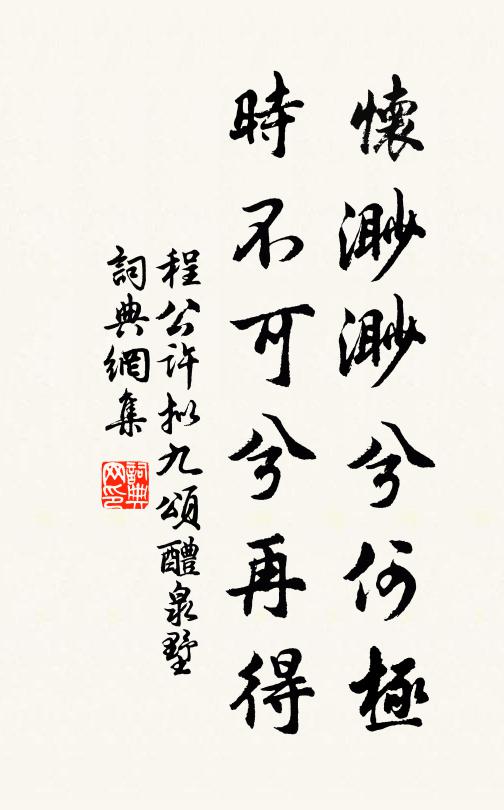 懷渺渺兮何極
時不可兮再得
程公許拟九頌醴泉墅
詞典網集
詞典網印